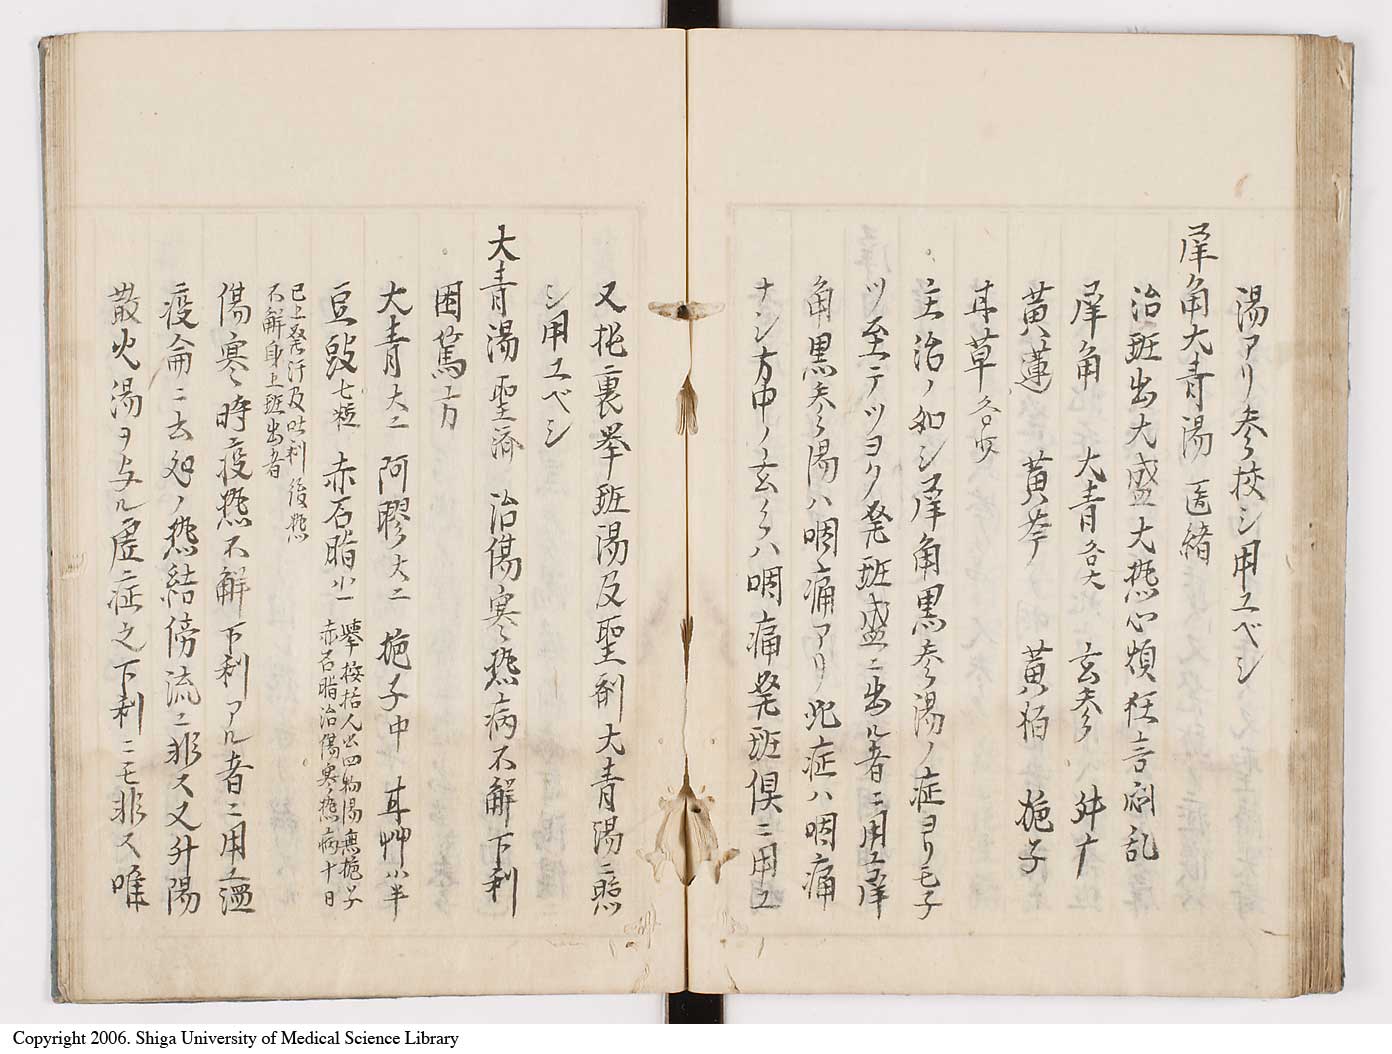 湯アリ参校シ用ユベシ
犀角大青湯 医緒
治斑出大盛大熱心煩狂言悶乱
犀角 大青各大 玄参 升广
黄蓮 黄芩 黄柏 梔子
耳草各少
主治ノ如シ犀角黒参湯ノ症ヨリモ子
ツ至テツヨク発班盛ニ出ル者ニ用ユ犀
角黒参湯ハ咽痛アリ此症ハ咽痛
ナシ方中ノ玄参ハ咽痛発班倶ニ用ユ
又托裏挙班湯及聖剤大青湯ニ照
シ用ユベシ
大青湯 聖済 治傷寒熱病不解下利
困篤方
大青大二 阿膠大二 梔子中 耳艸小半
豆豉七粒 赤石脂小一 挙按括人出四物湯無梔子
赤石脂治傷寒熱病十日
已上発汗及吐利後熱
不解身上班出者
傷寒時疫熱不解下利アル者ニ用ユ温
疫侖ニ云処ノ熱結傍流ニ非ス又升陽
散火湯ヲ与ル虚症之下利ニモ非ス唯
Copyright 2006. Shiga University of Medical Science Library